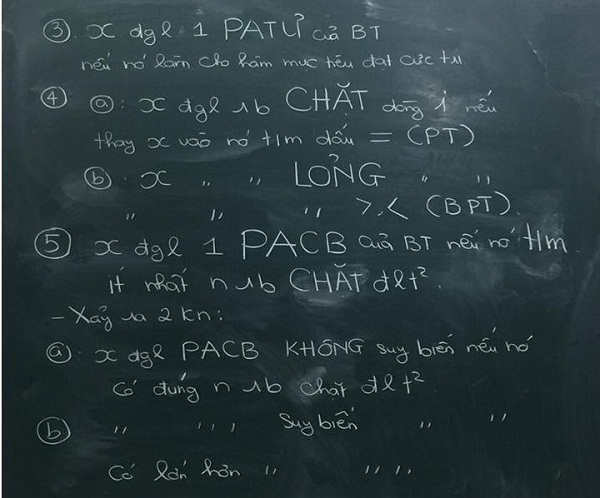 ③. x đgl 1 PATƯ của BT
nếu nó làm cho hàm mục tiêu đạt cực trị
④ ⓐ: x đgl 1 rb CHẶT dòng i nếu
thay x vào nó t/m dấu = (PT)
ⓑ: x " " LỎNG " "
" " " >,< (BPT).
⑤ x đgl 1 PACB của BT nếu nó t/m
ít nhất n rb CHẶT đlt².
- Xảy ra 2 kn:
ⓐ: x đgl PACB KHÔNG suy biến nếu nó
Có đúng n rb chặt đlt²
ⓑ " " ' Suy biến " "
Có lớn hơn " " "